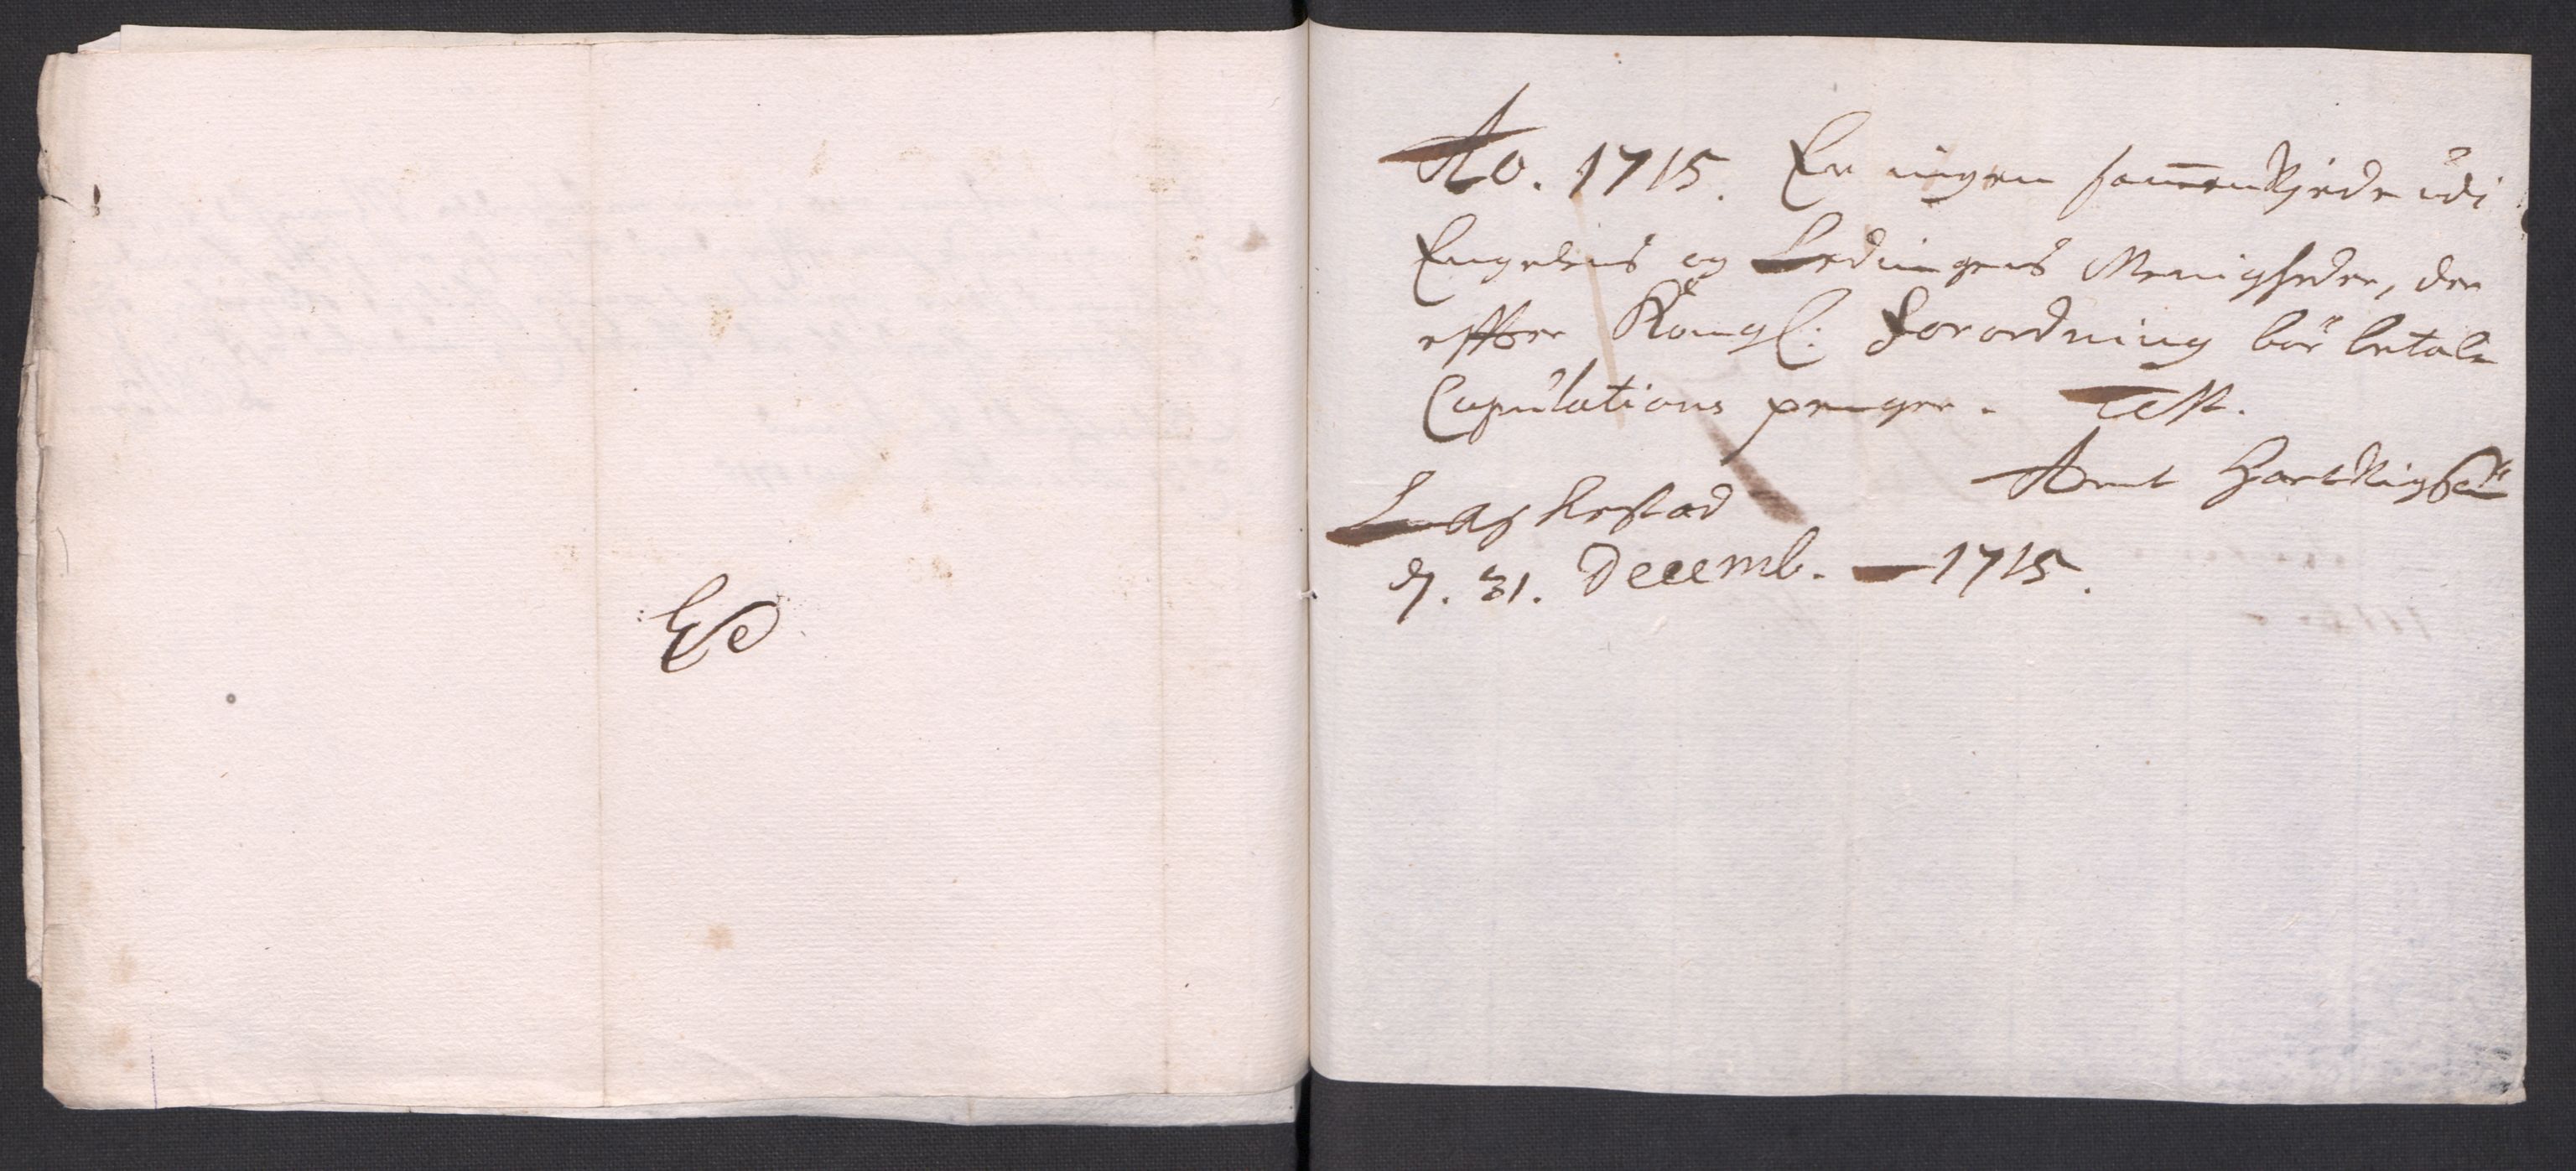 Ao. 1715. Er ingen sammenviede udi
Engeløens og Ledingens Menigheder, der
effter Kongl: Forordning bør betale
Copulations penger. Test.
Arnt Hartvigsen
Laskestad
d. 31. Decemb. — 1715.